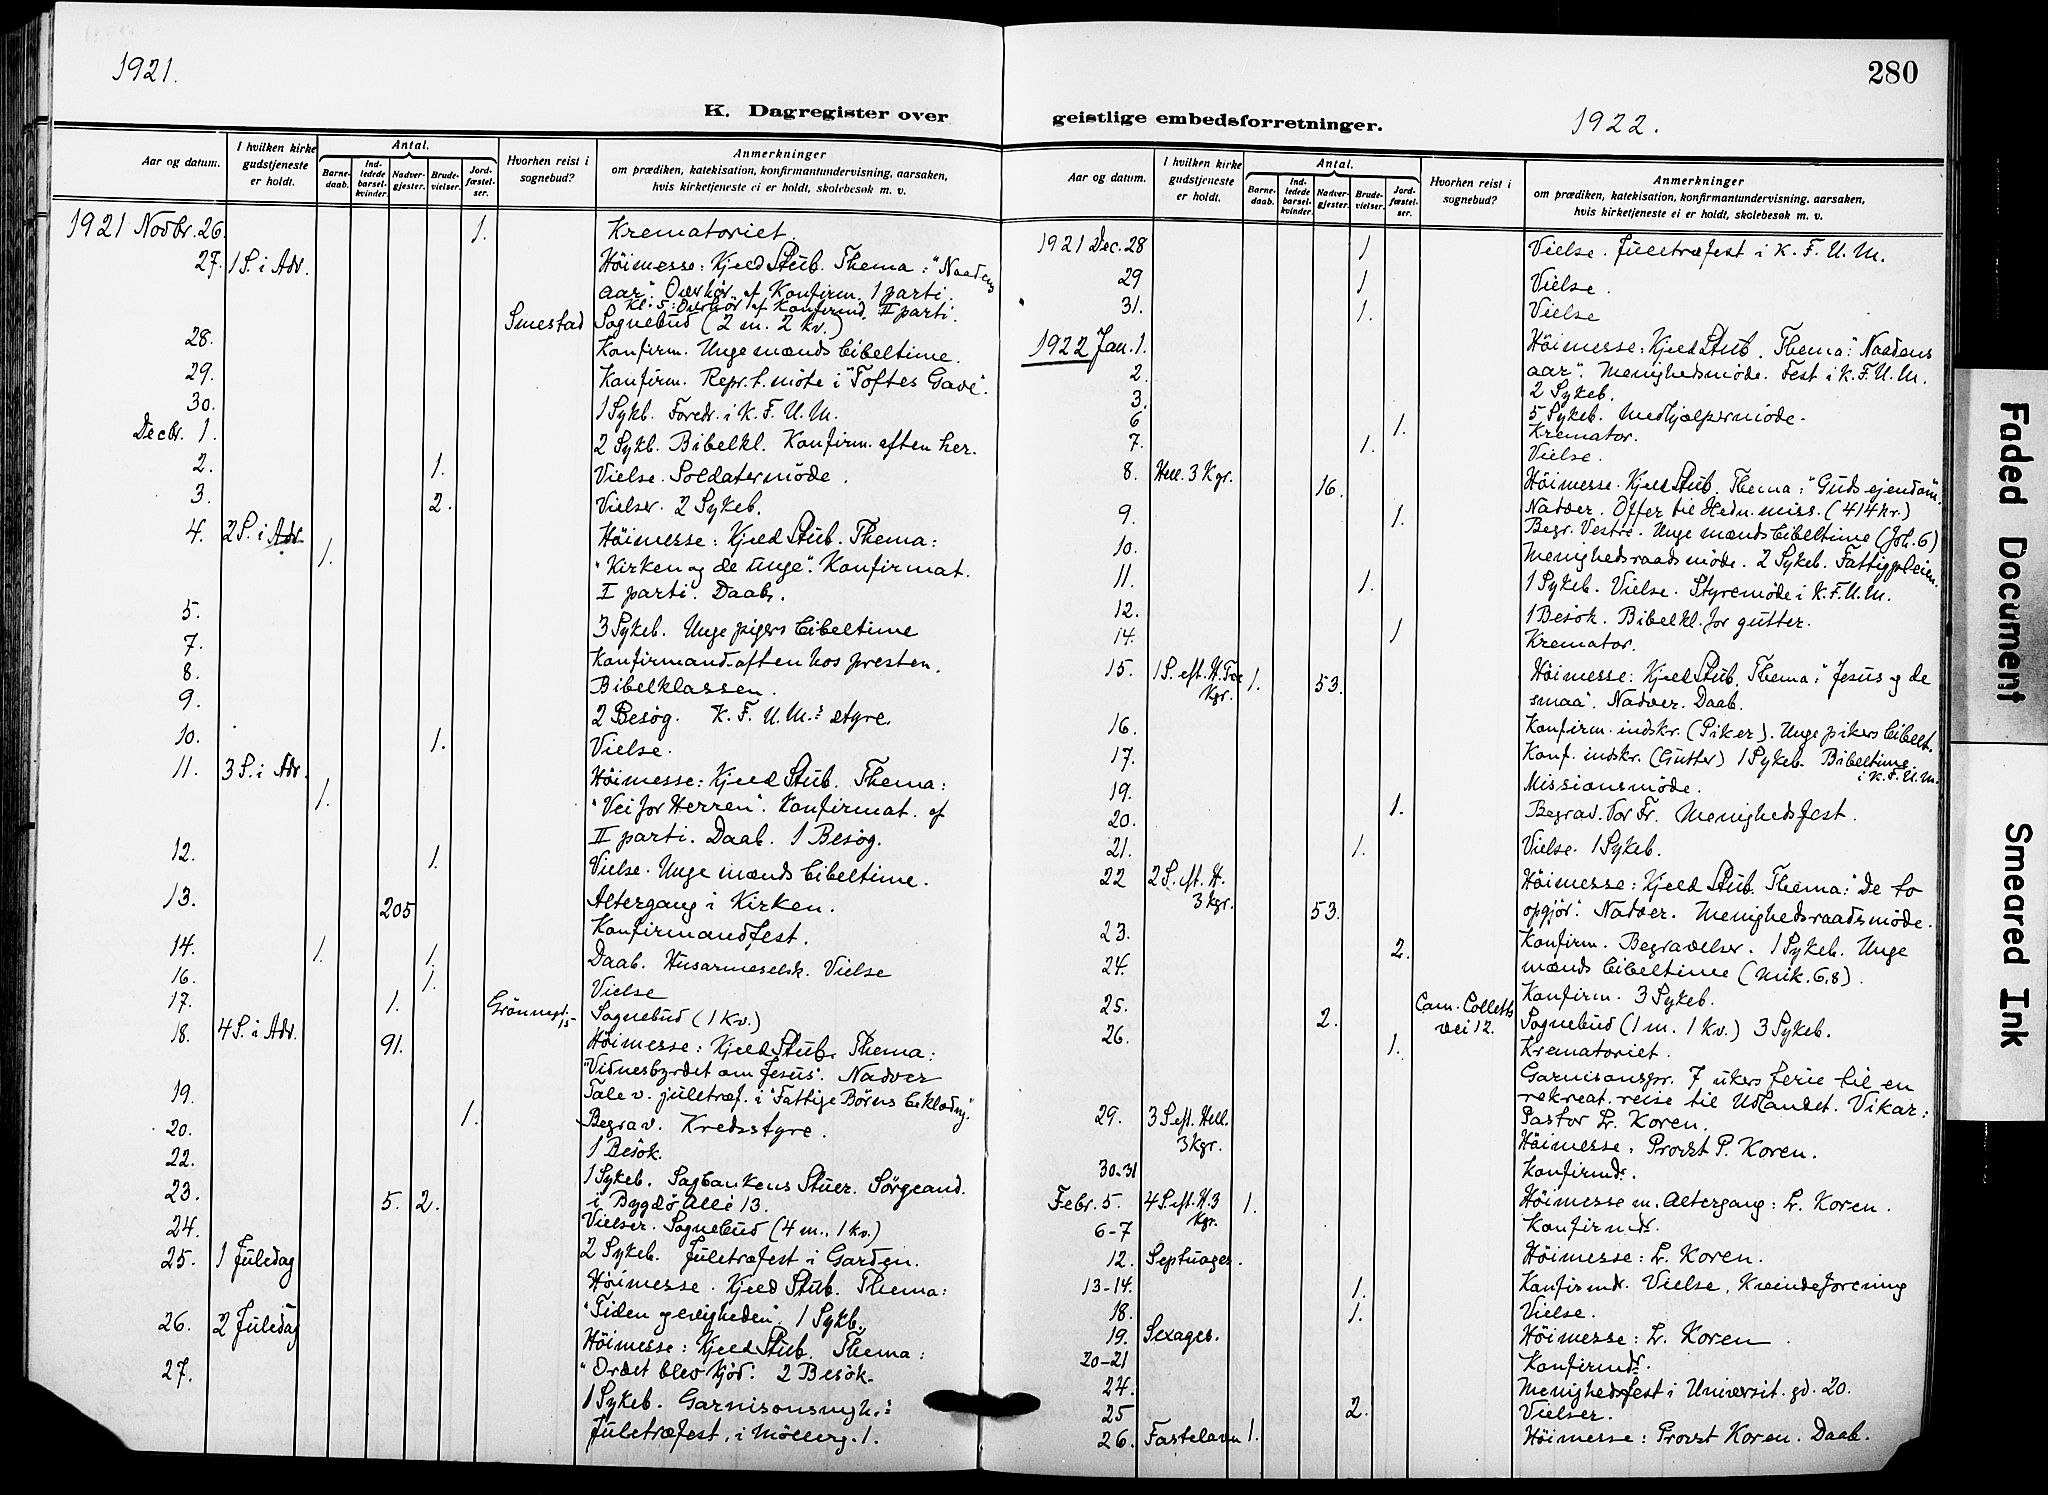 1921.
K. Dagregister over
Aar og datum.
I hvilken kirke gudstjeneste er holdt.
Antal.
Barne-daab.
Ind-ledede barsel-kvinder.
Nadver-gjester.
Brude-vielser.
Jord-fæstel-ser.
Hvorhen reist i sognebud?
Anmerkninger
om prædiken, katekisation, konfirmantundervisning, aarsaken,
hvis kirketjeneste ei er holdt, skolebesøk m. v.
1921 Novbr. 26. 1. Krematoriet.
27. 1 S. i Adv. Höimesse: Kjeld Stub. Thema: "Naadens
aar". Overhör. af Konfirm. 1 parti.
Kl. 5: Overhör af Konfirmd. II parti.
Smestad Sognebud (2 m. 2 kv.)
28. Konfirm. Unge mænds bibeltime.
29. Konfirm. Repr.s. möte i "Toftes Gave".
30. 1 Sykb. Foredr. i K. F. U. M.
Decbr. 1. 2 Sykb. Bibelkl. Konfirm. aften her.
2. 1. Vielse. Soldatermöde.
3. 2. Vielser. 2 Sykeb.
4. 2 S. i Adv. Höimesse: Kjeld Stub. Thema:
1. "Kirken og de unge". Konfirmat.
I parti. Daab.
5. 3 Sykeb. Unge pigers bibeltime
7. Konfirmand-aften hos presten.
8. Bibelklassen.
9. 2 Besøg. K. F. U. M.s styre.
10. 1. Vielse.
11. 3 S. i Adv. Höimesse: Kjeld Stub. Thema:
1. "Vei for Herren". Konfirmat. af
II parti. Daab. 1 Besøg.
12. 1. Vielse. Unge mænds bibeltime.
13. 205 Altergang i Kirken.
Konfirmandfest.
14. 1. 1. Daab. Husarmeselsk. Vielse
16. 1. Vielse
17. 1. Grönnegt. 15 Sognebud (1 kv.)
18. 4 S. i Adv. 91. Höimesse: Kjeld Stub. Thema:
"Vidnesbyrdet om Jesus". Nadver
19. Tale v. juletræf. i "Fattige Børns beklædng."
20. 1. Begrav. Kredsstyre.
22. 1 Besök.
23. 1 Sykeb. Sagbankens Stuer. Sörgeand.
5. 2. i Bygdö Allé 13.
24. Vielser. Sognebud (4 m., 1 kv.)
2 Sykeb. Juletræfest i Garden.
25. 1 Juledag Höimesse. Kjeld Stub. Thema:
"Tiden og evigheden". 1 Sykb.
26. 2 Juledag Höimesse: Kjeld Stub. Thema:
"Ordet blev kjöd". 2 Besök.
27. 1 Sykeb. Garnisonsmgh.s
Juletræfest, i Möllerg. 1.
280
geistlige embedsforretninger.
1922.
Aar og datum.
I hvilken kirke gudstjeneste er holdt.
Antal.
Barne-daab.
Ind-ledede barsel-kvinder.
Nadver-gjester.
Brude-vielser.
Jord-fæstel-ser.
Hvorhen reist i sognebud?
Anmerkninger
om prædiken, katekisation, konfirmantundervisning, aarsaken,
hvis kirketjeneste ei er holdt, skolebesøk m. v.
1921 Dec. 28 1 Vielse. Juletræfest i K. F. U. M.
29 1 Vielse.
31. 1. Vielse
1922 Jan. 1. Höimesse: Kjeld Stub. Thema: "Naadens
aar". Menighedsmöde. Fest i K. F. U. M.
2. 2 Sykeb.
3. 5 Sykeb. Medhjælpermöde.
6 1. Kremator.
7. 1. Vielse.
8. Hell. 3 Kgr. 16. Höimesse. Kjeld Stub. Thema: "Guds ejendom".
Nadver. Offer til Hedn. miss. (414 kr.)
9. 1. Begr. Vestre. Unge mænds bibeltime (Joh. 6)
10. Menighedsraadsmöde. 2 Sykeb. Fattigpleien.
11. 1. 1 Sykeb. Vielse. Styremöde i K. F. U. M.
12. 1 Besök. Bibelkl. for gutter.
14. 1 Kremator.
15. 1 S. eft. H. Tre Kgr. 1. 53. Höimesse: Kjeld Stub. Thema: "Jesus og de
smaa". Nadver. Daab.
16. Konfirm. indskr. (Piker). Unge pikers bibelt.
17. Konf. indskr. (Gutter) 1 Sykeb. Bibeltime
i K. F. U. M.
19. Missionsmöde.
20. 1. Begrav. Vor Fr. Menighedsfest.
21. 1. Vielse. 1 Sykeb.
22 2 S. eft. H. 3 kgr. 53. Höimesse: Kjeld Stub. Thema: "De to
opgjör". Nadver. Menighedsraadsmöde.
23. 2. Konfirm. Begravelser. 1 Sykeb. Unge
mænds bibeltime (Mik. 6,8).
24. Konfirm. 3 Sykeb.
25. 2. Cam. Colletts vei 12. Sognebud (1 m. 1 kv.) 3 Sykeb.
26. 1. Krematoriet.
Garnisonspr. 7 ukers ferie til en
rekreat. reise til Udlandet. Vikar:
Pastor L. Koren.
29. 3 S. eft. Hell. 3 kgr. Höimesse. Provst P. Koren.
30-31 Konfirmdr.
Febr. 5. 4 S. eft. H. 3 Kgr. 1. Höimesse m. Altergang: L. Koren.
6-7 Konfirmdr.
12. Septuages. Höimesse: L. Koren.
13-14. 1. Konfirmdr. Vielse. Kvindeforening
18. 1. Vielse.
19. Sexages. Höimesse: L. Koren.
20-21 Konfirmdr.
24. Menighedsfest i Universit. gd. 20.
25 2. Vielser.
26. Fastelavn 1. Höimesse: Provst Koren. Daab.
Faded Document
Smeared Ink